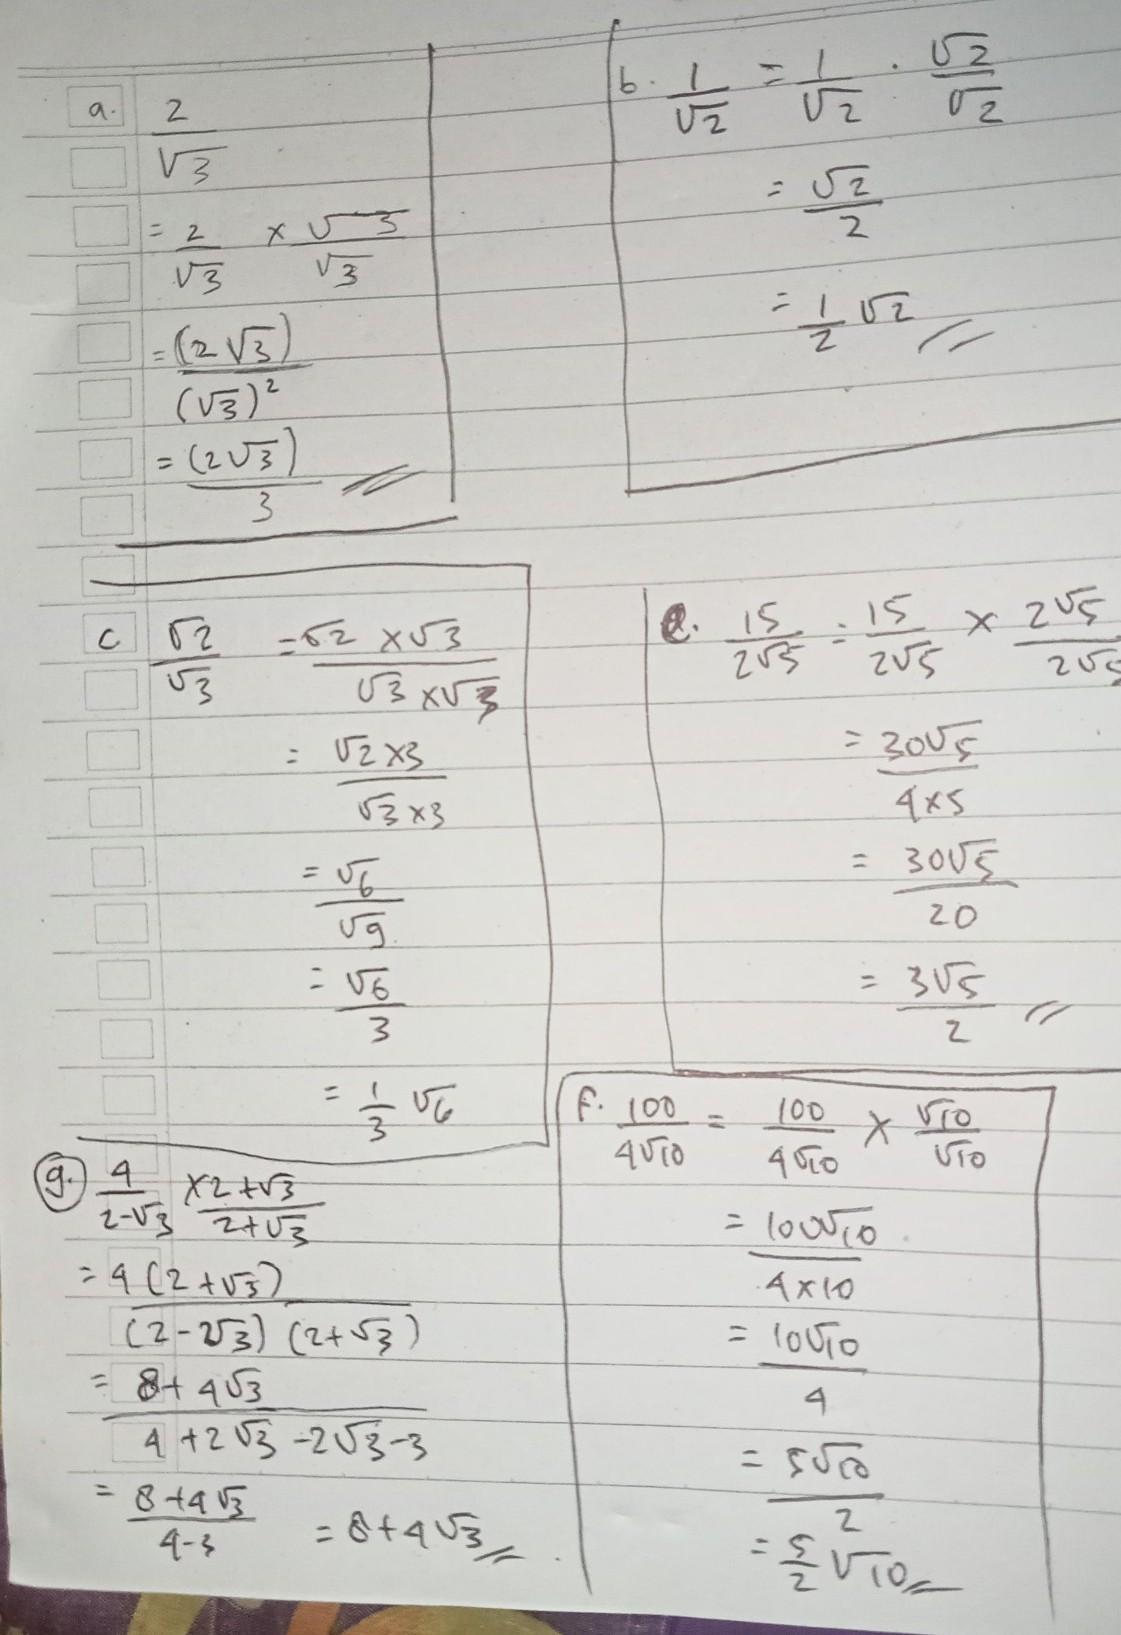 a. 2/√3
= 2/√3 × √3/√3
= (2√3)/(√3)²
= (2√3)/3
b. 1/√2 = 1/√2 . √2/√2
= √2/2
= 1/2 √2
c √2/√3 = √2 × √3/√3 × √3
= √2 × 3/√3 × 3
= √6/√9
= √6/3
= 1/3 √6
e. 15/2√5 = 15/2√5 × 2√5/2√5
= 30√5/4 × 5
= 30√5/20
= 3√5/2
f. 100/4√10 = 100/4√10 × √10/√10
= 100√10/4 × 10
= 10√10/4
= 5√10/2
= 5/2 √10
g. 4/2-√3 × 2+√3/2+√3
= 4(2+√3)/(2-2√3)(2+√3)
= 8+4√3/4+2√3-2√3-3
= 8+4√3/4-3 = 8+4√3